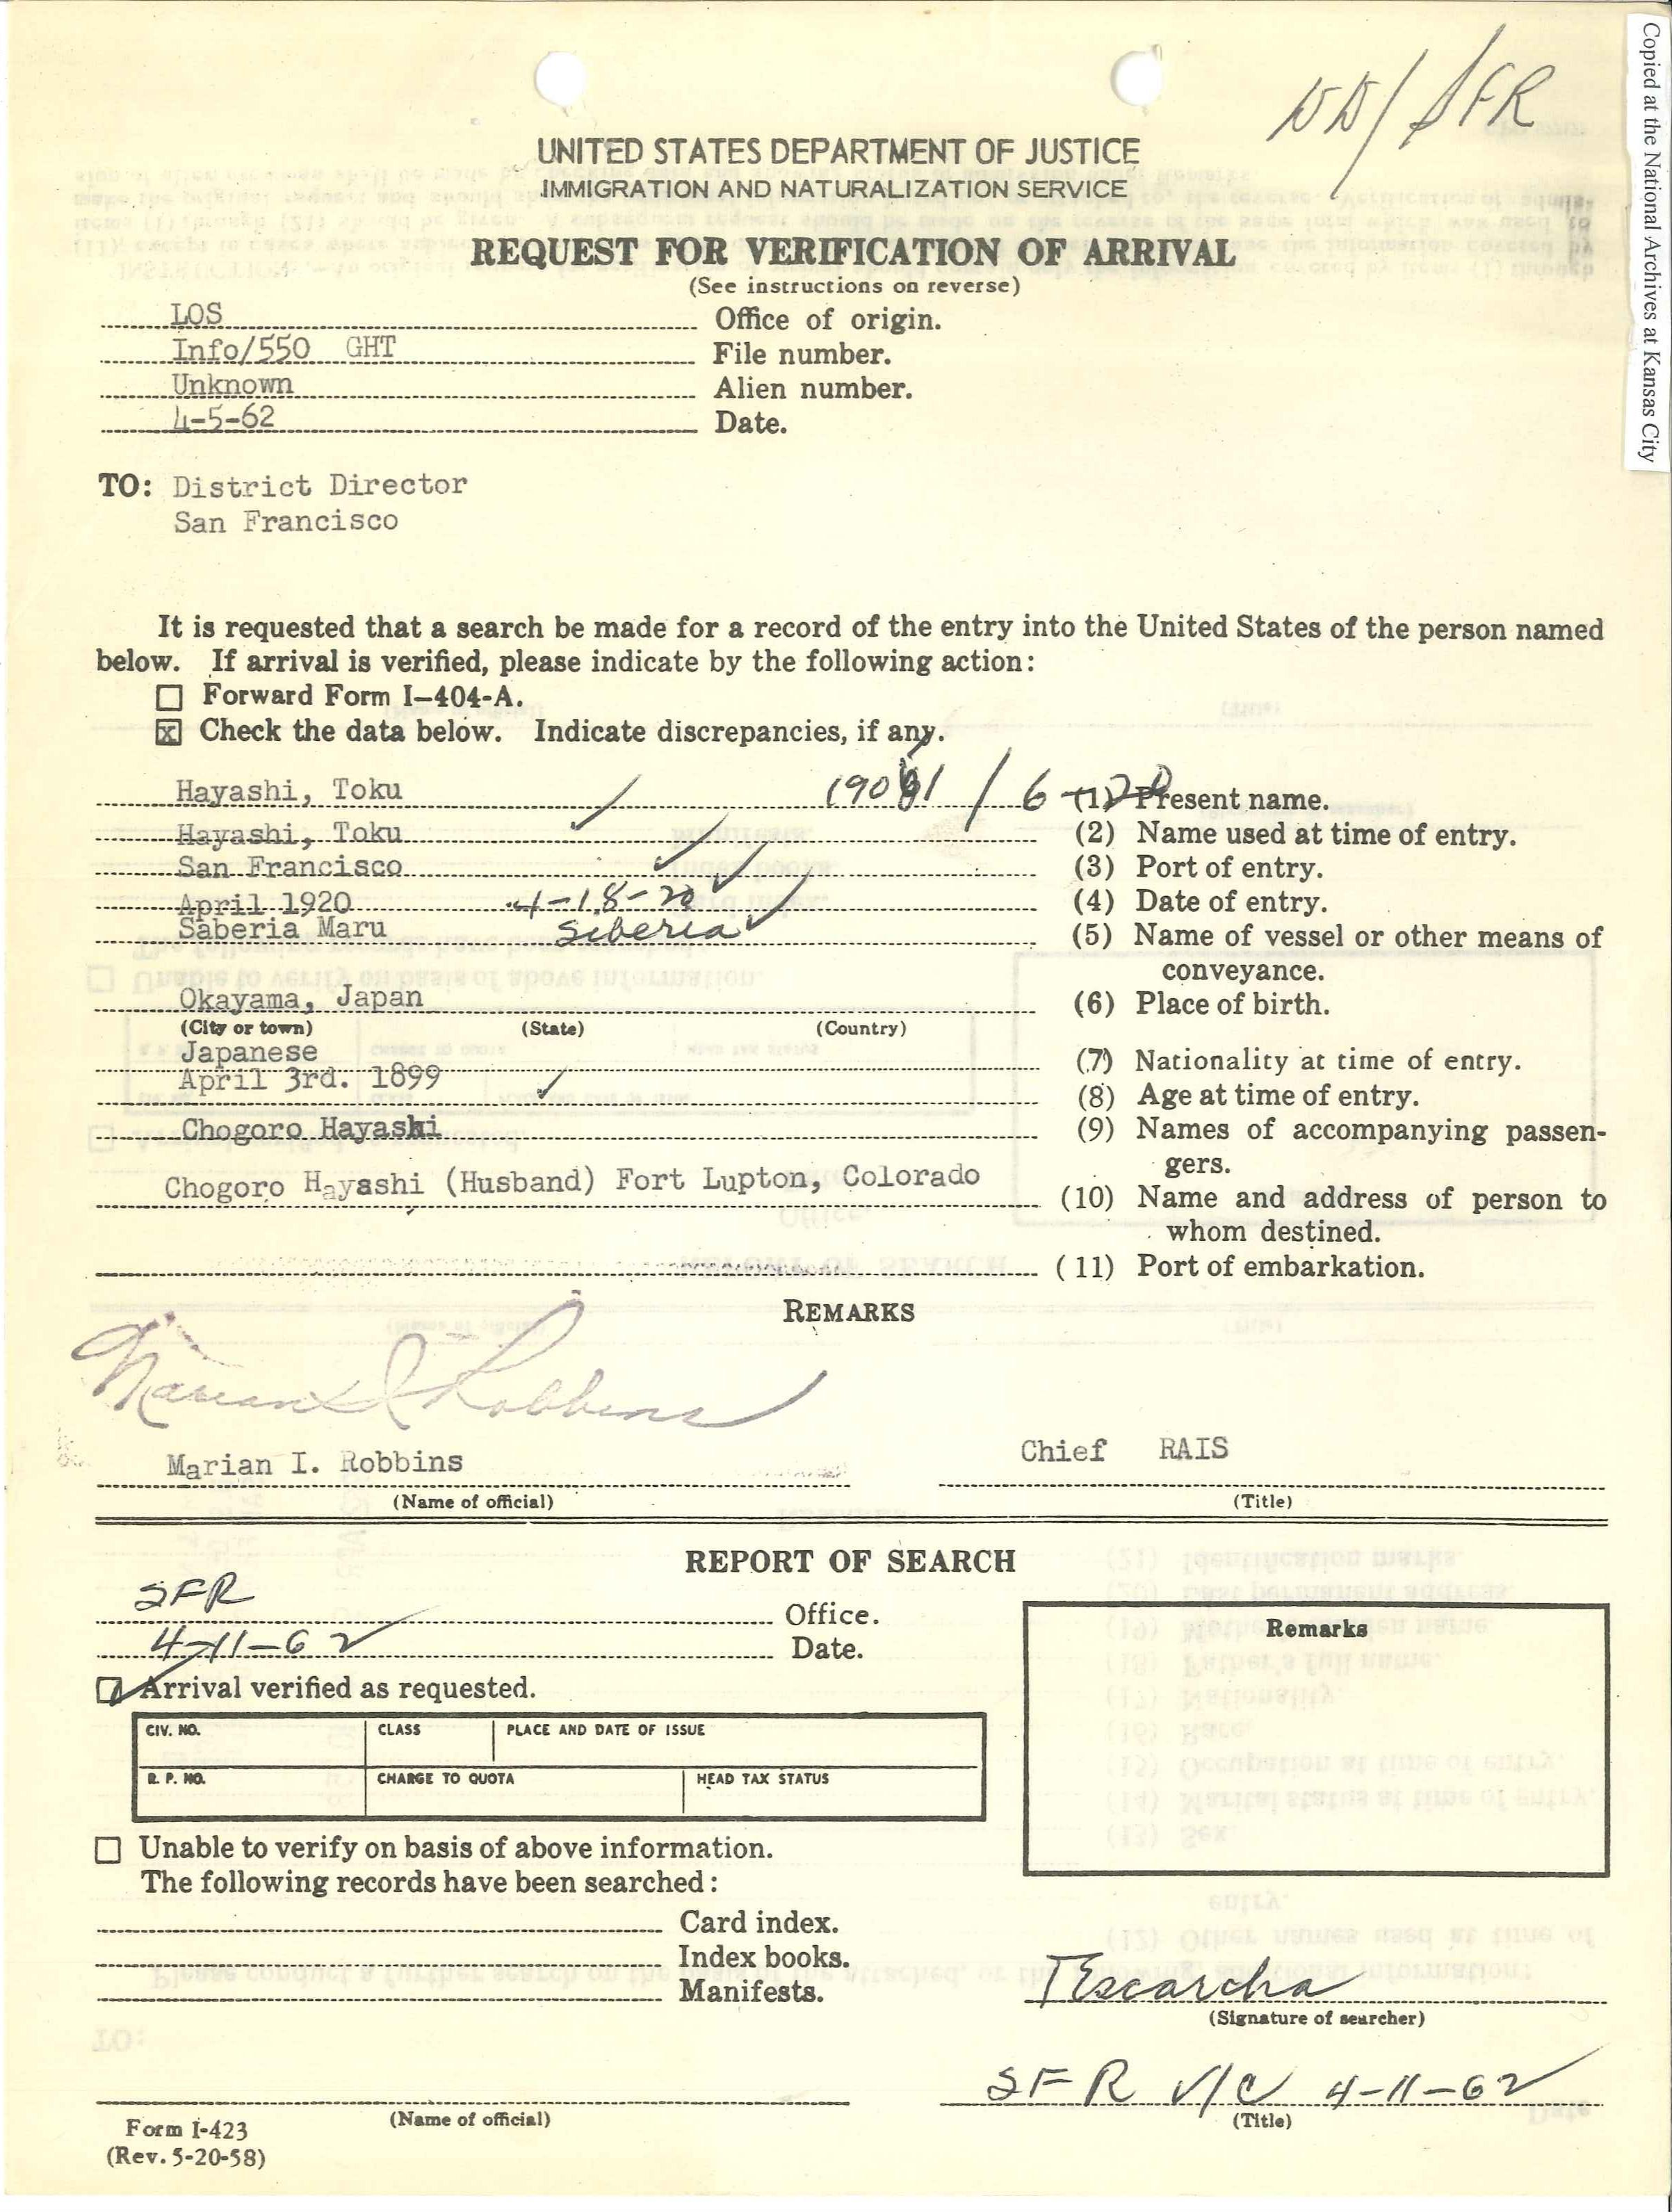 Copied at the National Archives at Kansas City
UNITED STATES DEPARTMENT OF JUSTICE
IMMIGRATION AND NATURALIZATION SERVICE
REQUEST FOR VERIFICATION OF ARRIVAL
(See instructions on reverse)
LOS Office of origin.
Info/550 GHT File number.
Unknown Alien number.
4-5-62 Date.
TO: District Director
San Francisco
It is requested that a search be made for a record of the entry into the United States of the person named
below. If arrival is verified, please indicate by the following action:
Forward Form I-404-A.
x Check the data below. Indicate discrepancies, if any.
Hayashi, Toku (1) Present name.
Hayashi, Toku (2) Name used at time of entry.
San Francisco (3) Port of entry.
April 1920 4-18-20 (4) Date of entry.
Saberia Maru Siberia (5) Name of vessel or other means of
conveyance.
Okayama, Japan (6) Place of birth.
(City or town) (State) (Country)
Japanese (7) Nationality at time of entry.
April 3rd. 1899 (8) Age at time of entry.
Chogoro Hayashi (9) Names of accompanying passen-
gers.
Chogoro Hayashi (Husband) Fort Lupton, Colorado (10) Name and address of person to
whom destined.
(11) Port of embarkation.
REMARKS
Marian I Robbins
Marian I. Robbins Chief RAIS
(Name of official) (Title)
REPORT OF SEARCH
SFR Office.
4-11-62 Date.
Remarks
Arrival verified as requested.
CIV. NO. CLASS PLACE AND DATE OF ISSUE
R. P. NO. CHARGE TO QUOTA HEAD TAX STATUS
Unable to verify on basis of above information.
The following records have been searched:
Card index.
Index books.
Manifests.
TEscarcha
(Signature of searcher)
SFR V/C 4-11-62
(Name of official) (Title)
Form I-423
(Rev. 5-20-58)